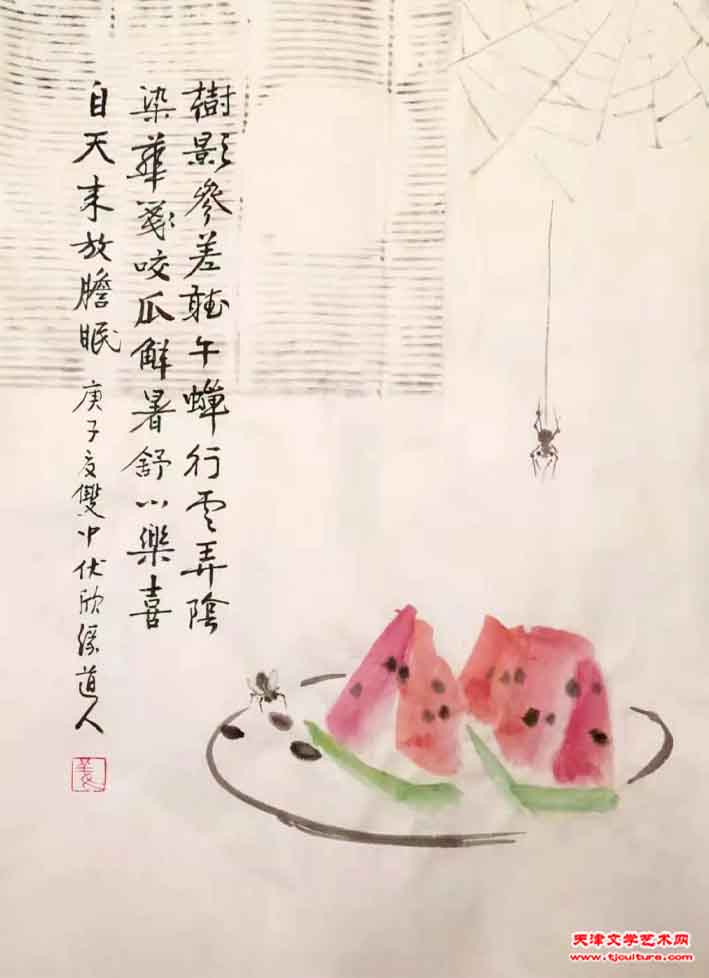 樹影參差聽午蟬行雲弄陰
染華箋咬瓜解暑舒心樂喜
自天來放膽眠 庚子夏雙中伏欣緣道人
天津文学艺术网
www.tjculture.com